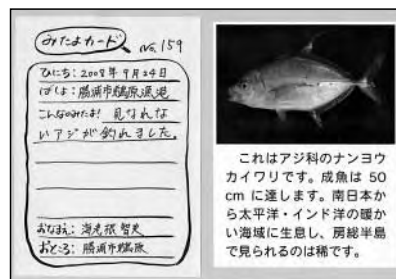 みたよカード
No.159
ひにち：2008年9月24日
ばしょ：勝浦市鵜原漁港
こんなのみたよ！ 見なれな
いアジが釣れました。
おなまえ：海老根智夫
おところ：勝浦市鵜原
これはアジ科のナンヨウ
カイワリです。成魚は 50
cm に達します。南日本か
ら太平洋・インド洋の暖か
い海域に生息し、房総半島
で見られるのは稀です。